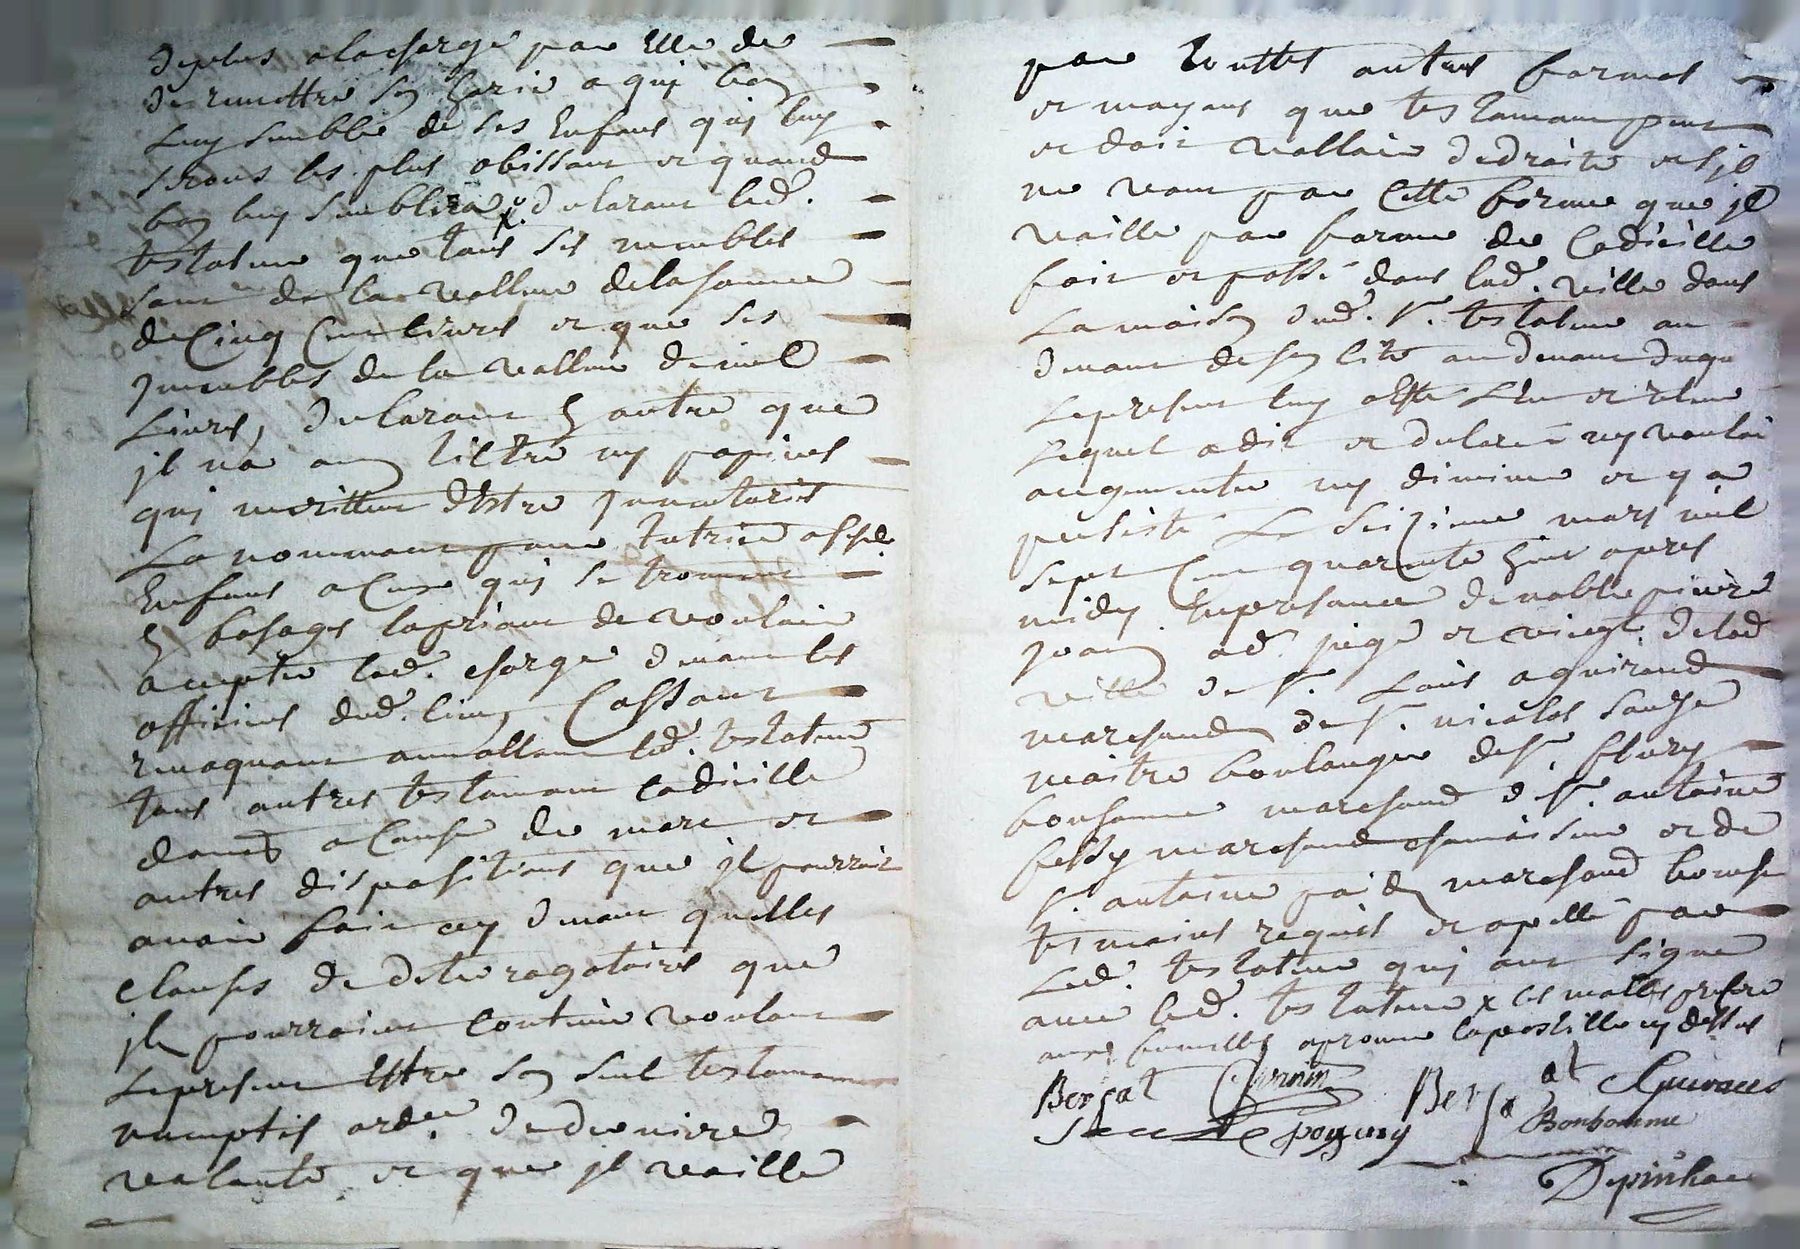 deplus alacharge par Elle de
de remettre son herie a qui bon
luy semble de ses Enfans qui luy
serons les plus obissant et quand
bon luy semblera declarant led.
testateur que tous ses meubles
sont de la valleur delasomme
de Cinq Cent livres et que ses
jmmubles de la valleur de mil
Livres, declarant En autre que
jl na aucun tiltre ny papiers
qui meritteur dEstre jnventories
La nommant pour tutrice asesd.
Enfans a Ceux qui se trouvent
En bas ages lapriant de vouloir
accepter lad. charge devant les
officiers dud. lieu Cassant
revoquant annullant led. testateur
tous autres testamant Codicille
donnes a Cause de mort et
autres dispositions que jl pourroit
avoir fait cy devant quelles
clauses de deterogatoires que
jls pourroint Contenir voulant
Lepresent Estre son seul testamant
nuncuptif orde. de derniere
vallonte et que jl vaille
par touttes autres formes
et moyans que testamant peut
et doit valloir dedroit et sy
ne vaut par Cette forme que jl
vaille par forme de Codicille
fait et passé dans lad. ville dans
La maison dud. Sr. testateur au
devant de son lit au devant duqu
Lepresent luy a Esté Leu et releu
Lequel a dit et declaré ny vouloir
augmenter ny diminuer et y a
percisté Le seizieme mars mil
sept Cent quarente huit apres
midy Enpresance de noble pierre
jean ad. juge et viegt. de lad
ville de Sr. Louis aguiraud
marchand de Sr. nicolas sauze
maitre boulanger de Sr. fleury
bonhomme marchand d Sr. antoine
fessy marchand chamoisseur et de
Sr. antoine marchand
tesmoins requis et apellé par
Led. testateur qui ont signe
avec led. testateur x les mottes
aprouve lapostille cy dessus
Berhat Bonhomme
Depinhac